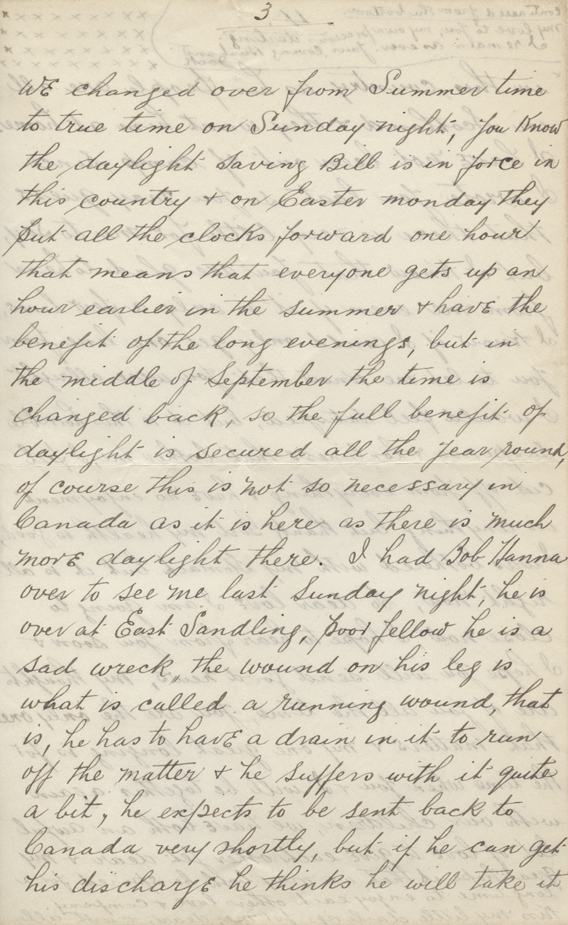 3
WE changed over from Summer time
to true time on Sunday night, you know
the daylight saving Bill is in force in
this country & on Easter monday they
put all the clocks forward one hour
that means that everyone gets up an
hour earlier in the summer & havE the
benefit of the long evenings, but in
the middle of September the time is
changed back, so the full benefit of
daylight is secured all the year round,
of course this is not so necessary in
Canada as it is here as there is much
morE daylight there. I had Bob Hanna
over to see me last Sunday night, he is
over at East Sandling, poor fellow he is a
sad wreck, the wound on his leg is
what is called a running wound, that
is, he has to havE a drain in it to run
off the matter & he suffers with it quite
a bit, he expects to be sent back to
Canada very shortly, but if he can get
his dischargE he thinks he will take it